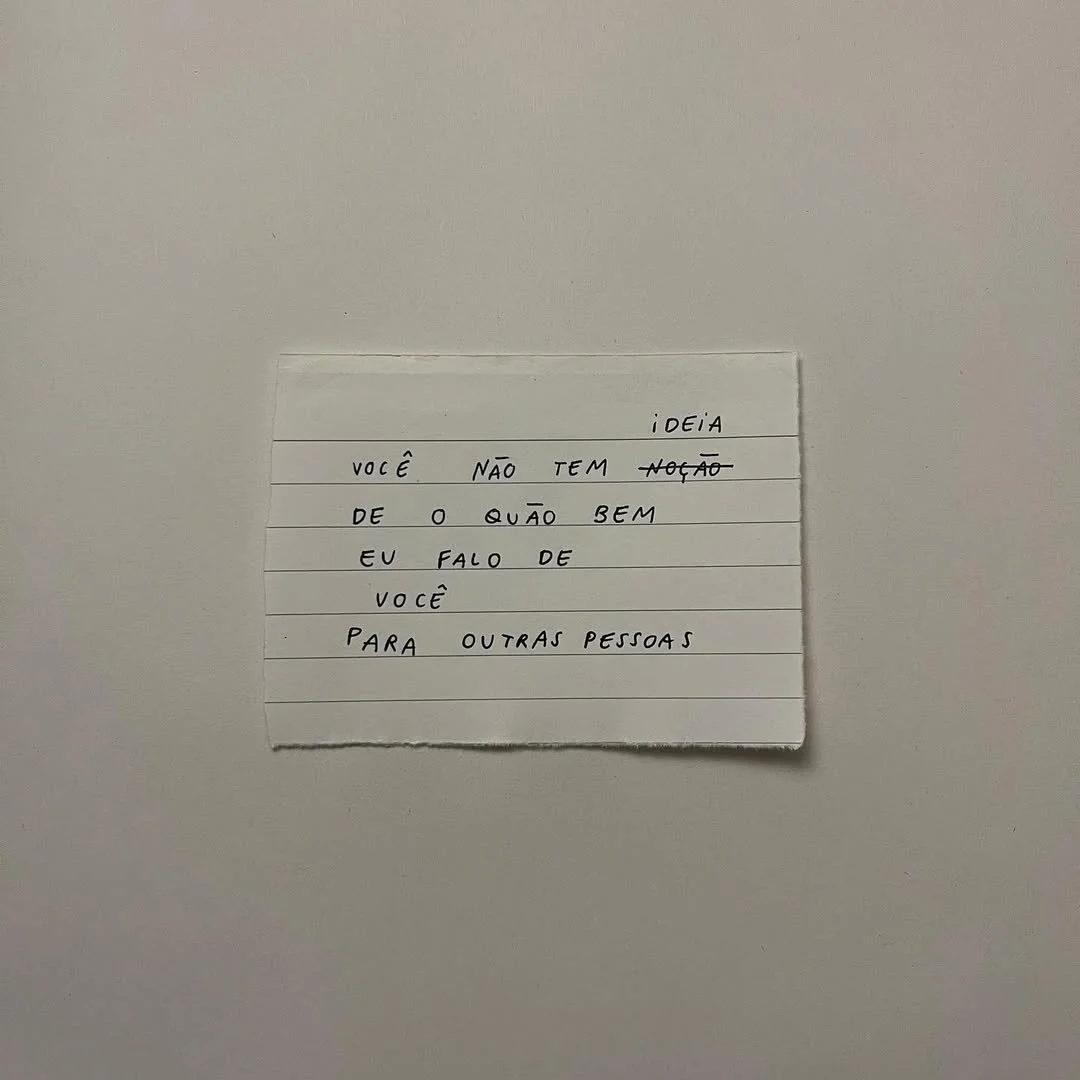 iDEiA
VOCÊ NÃO TEM NOÇÃO
DE O QUÃO BEM
EU FALO DE
VOCÊ
PARA OUTRAS PESSOAS